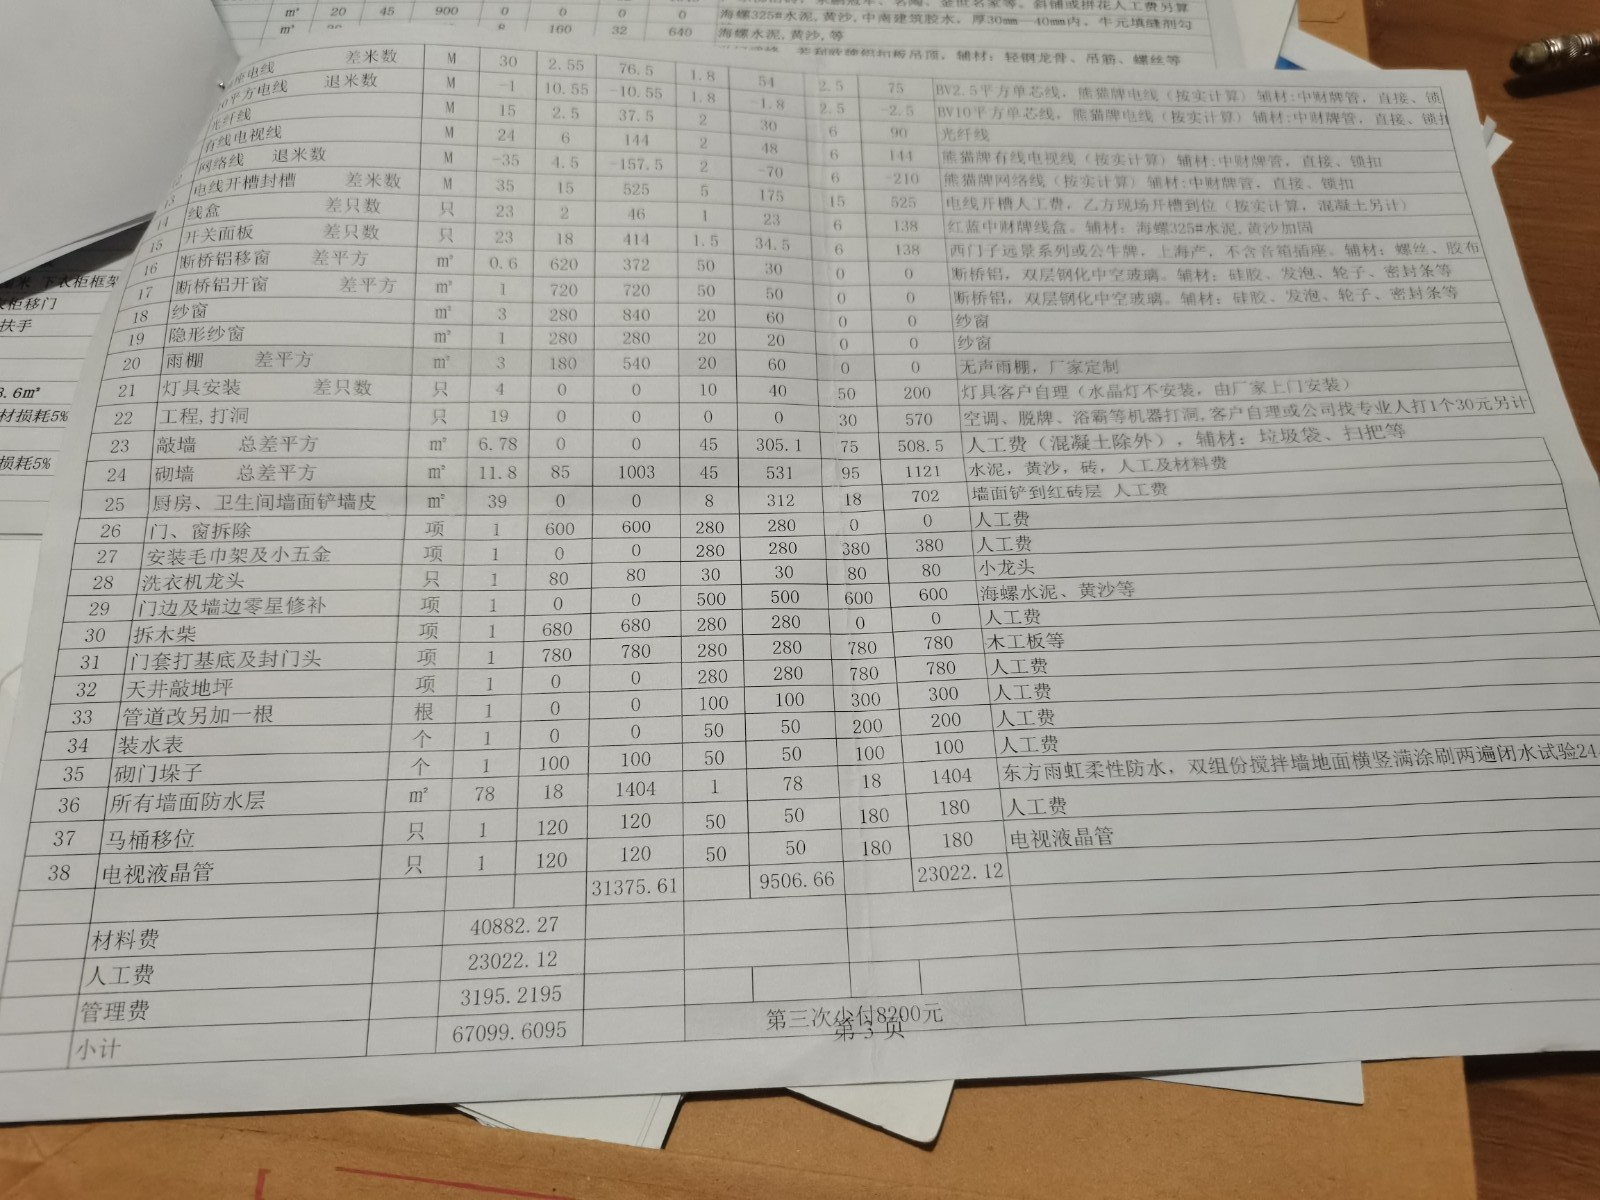 m² 20 45 900 0 0 0 0
海螺325#水泥,黄沙,中南建筑胶水,厚30mm—40mm内。牛元填缝剂勾
160 32 640 海螺水泥,黄沙,等
辅材:轻钢龙骨、吊筋、螺丝等
电线 差米数 M 30 2.55 76.5 1.8 54 2.5 75 BV2.5平方单芯线,熊猫牌电线(按实计算)辅材:中财牌管,直接、锁
10平方电线 退米数 M -1 10.55 -10.55 1.8 -1.8 2.5 -2.5 BV10平方单芯线,熊猫牌电线(按实计算)辅材:中财牌管,直接、锁扣
光纤线 M 15 2.5 37.5 2 30 6 90 光纤线
有线电视线 M 24 6 144 2 48 6 144 熊猫牌有线电视线(按实计算)辅材:中财牌管,直接、锁扣
网络线 退米数 M -35 4.5 -157.5 2 -70 6 -210 熊猫牌网络线(按实计算)辅材:中财牌管,直接、锁扣
13 电线开槽封槽 差米数 M 35 15 525 5 175 15 525 电线开槽人工费,乙方现场开槽到位(按实计算,混凝土另计)
14 线盒 差只数 只 23 2 46 1 23 6 138 红蓝中财牌线盒。辅材:海螺325#水泥,黄沙加固
15 开关面板 差只数 只 23 18 414 1.5 34.5 6 138 西门子远景系列或公牛牌,上海产,不含音箱插座。辅材:螺丝、胶布
16 断桥铝移窗 差平方 m² 0.6 620 372 50 30 0 0 断桥铝,双层钢化中空玻璃。辅材:硅胶、发泡、轮子、密封条等
17 断桥铝开窗 差平方 m² 1 720 720 50 50 0 0 断桥铝,双层钢化中空玻璃。辅材:硅胶、发泡、轮子、密封条等
18 纱窗 m² 3 280 840 20 60 0 0 纱窗
19 隐形纱窗 m² 1 280 280 20 20 0 0 纱窗
20 雨棚 差平方 m² 3 180 540 20 60 0 0 无声雨棚,厂家定制
21 灯具安装 差只数 只 4 0 0 10 40 50 200 灯具客户自理(水晶灯不安装,由厂家上门安装)
22 工程,打洞 只 19 0 0 0 0 30 570 空调、脱牌、浴霸等机器打洞,客户自理或公司找专业人打1个30元另计
23 敲墙 总差平方 m² 6.78 0 0 45 305.1 75 508.5 人工费(混凝土除外),辅材:垃圾袋、扫把等
24 砌墙 总差平方 m² 11.8 85 1003 45 531 95 1121 水泥,黄沙,砖,人工及材料费
25 厨房、卫生间墙面铲墙皮 m² 39 0 0 8 312 18 702 墙面铲到红砖层 人工费
26 门、窗拆除 项 1 600 600 280 280 0 0 人工费
27 安装毛巾架及小五金 项 1 0 0 280 280 380 380 人工费
28 洗衣机龙头 只 1 80 80 30 30 80 80 小龙头
29 门边及墙边零星修补 项 1 0 0 500 500 600 600 海螺水泥、黄沙等
30 拆木柴 项 1 680 680 280 280 0 0 人工费
31 门套打基底及封门头 项 1 780 780 280 280 780 780 木工板等
32 天井敲地坪 项 1 0 0 280 280 780 780 人工费
33 管道改另加一根 根 1 0 0 100 100 300 300 人工费
34 装水表 个 1 0 0 50 50 200 200 人工费
35 砌门垛子 个 1 100 100 50 50 100 100 人工费
36 所有墙面防水层 m² 78 18 1404 1 78 18 1404 东方雨虹柔性防水,双组份搅拌墙地面横竖满涂刷两遍闭水试验24
37 马桶移位 只 1 120 120 50 50 180 180 人工费
38 电视液晶管 只 1 120 120 50 50 180 180 电视液晶管
31375.61 9506.66 23022.12
材料费 40882.27
人工费 23022.12
管理费 3195.2195
小计 67099.6095
第三次尘付8200元
第 3 页
下衣柜框架
衣柜移门
扶手
3.6m²
材损耗5%
损耗5%